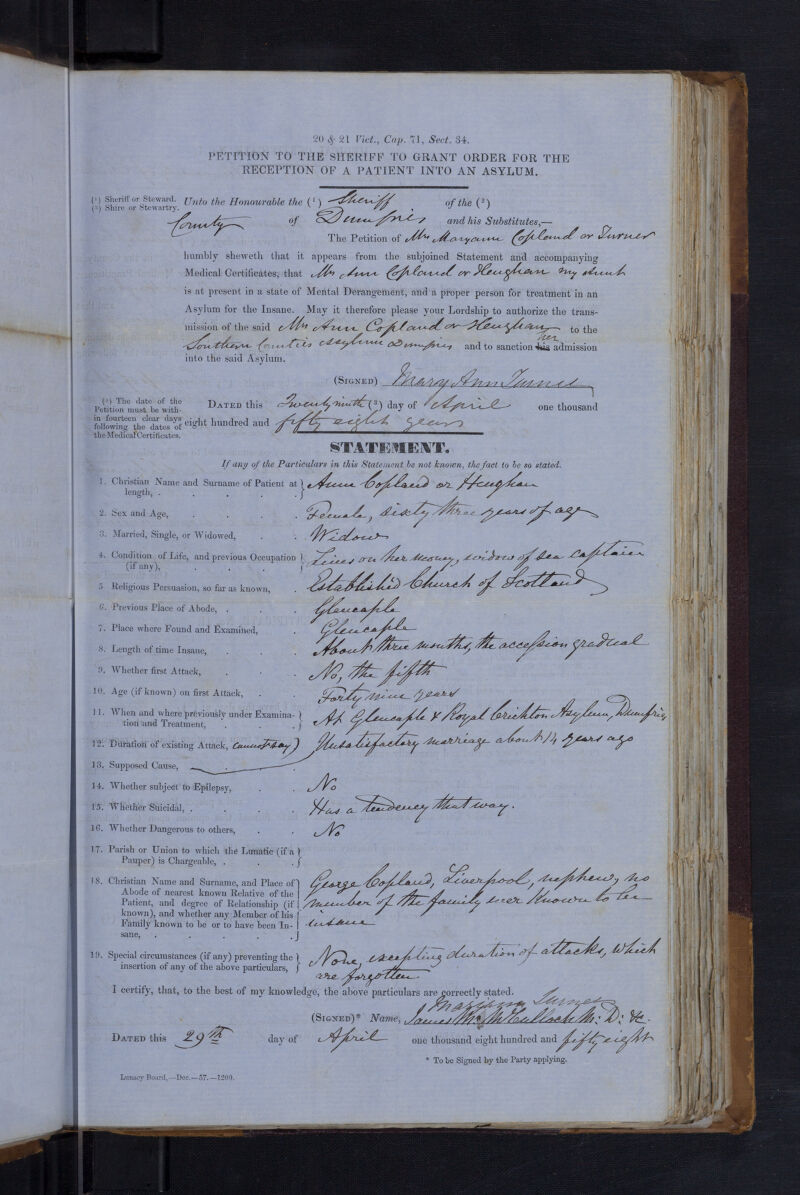 20 & 21 Vict., Cap. 71, Sect. 34.
PETITION TO THE SHERIFF TO GRANT ORDER FOR THE
RECEPTION OF A PATIENT INTO AN ASYLUM.
(1) Sheriff or Steward.
(2) Shire or Stewartry.
Unto the Honourable the (1) Sheriff of the (2)
County of Dumfries and his Substitutes,—
The Petition of Mrs Maryann Copland or Turner
humbly sheweth that it appears from the subjoined Statement and accompanying
Medical Certificates, that Mrs Ann Copland or Heughan my Aunt
is at present in a state of Mental Derangement, and a proper person for treatment in an
Asylum for the Insane. May it therefore please your Lordship to authorize the trans-
mission of the said Mrs Ann Copland or Heughan to the
Southern Counties Asylum Dumfries and to sanction his her admission
into the said Asylum.
(SIGNED) Mary Ann Turner
(3) The date of the
Petition must be with-
in fourteen clear days
following the dates of
the Medical Certificates.
DATED this Twenty ninth (3) day of April one thousand
eight hundred and fifty eight years
STATEMENT.
If any of the Particulars in this Statement be not known, the fact to be so stated.
1. Christian Name and Surname of Patient at length, . Anne Copland or Heughan
2. Sex and Age, Female, Sixty three years of age
3. Married, Single, or Widowed, Widow
4. Condition of Life, and previous Occupation (if any), Lives on her money, widow of Sea Captain
5 Religious Persuasion, so far as known, Established Church of Scotland
6. Previous Place of Abode, . Glencaple
7. Place where Found and Examined, Glencaple
8. Length of time Insane, About three months, the accession gradual
9. Whether first Attack, No, the fifth
10. Age (if known) on first Attack, Forty nine years
11. When and where previously under Examina-
tion and Treatment, At Glencaple & Royal Crichton Asylum, Dumfries
12. Duration of existing Attack, Cannot say) Unsatisfactory marriage about 14 years ago
13. Supposed Cause,
14. Whether subject to Epilepsy, No
15. Whether Suicidal, . Has a tendency that way.
16. Whether Dangerous to others, No
17. Parish or Union to which the Lunatic (if a
Pauper) is Chargeable, .
18. Christian Name and Surname, and Place of
Abode of nearest known Relative of the
Patient, and degree of Relationship (if
known), and whether any Member of his
Family known to be or to have been In-
sane,
George Copland, Liverpool, nephew, no
member of the family ever known to be
insane
19. Special circumstances (if any) preventing the
insertion of any of the above particulars,
None, excepting duration of attacks, which
are forgotten
I certify, that, to the best of my knowledge, the above particulars are correctly stated.
Turner
(SIGNED)* Name, James McCulloch M: D: &c.
DATED this 29th day of April one thousand eight hundred and fifty eight
* To be Signed by the Party applying.
Lunacy Board,—Dec.—57.—1200.